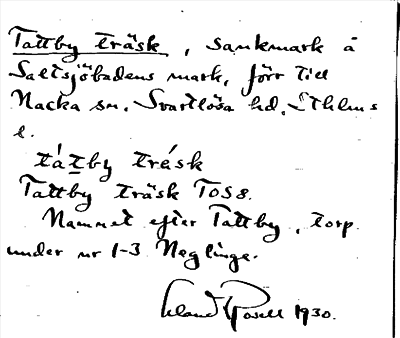 Tattby träsk, sankmark å
Saltsjöbadens mark, förr till
Nacka sn. Svartlösa hd. Sthlms
l.
tátby trésk
Tattby träsk TOS 8.
Namnet efter Tattby, torp
under nr 1-3 Neglinge.
Erland Rosell 1930.